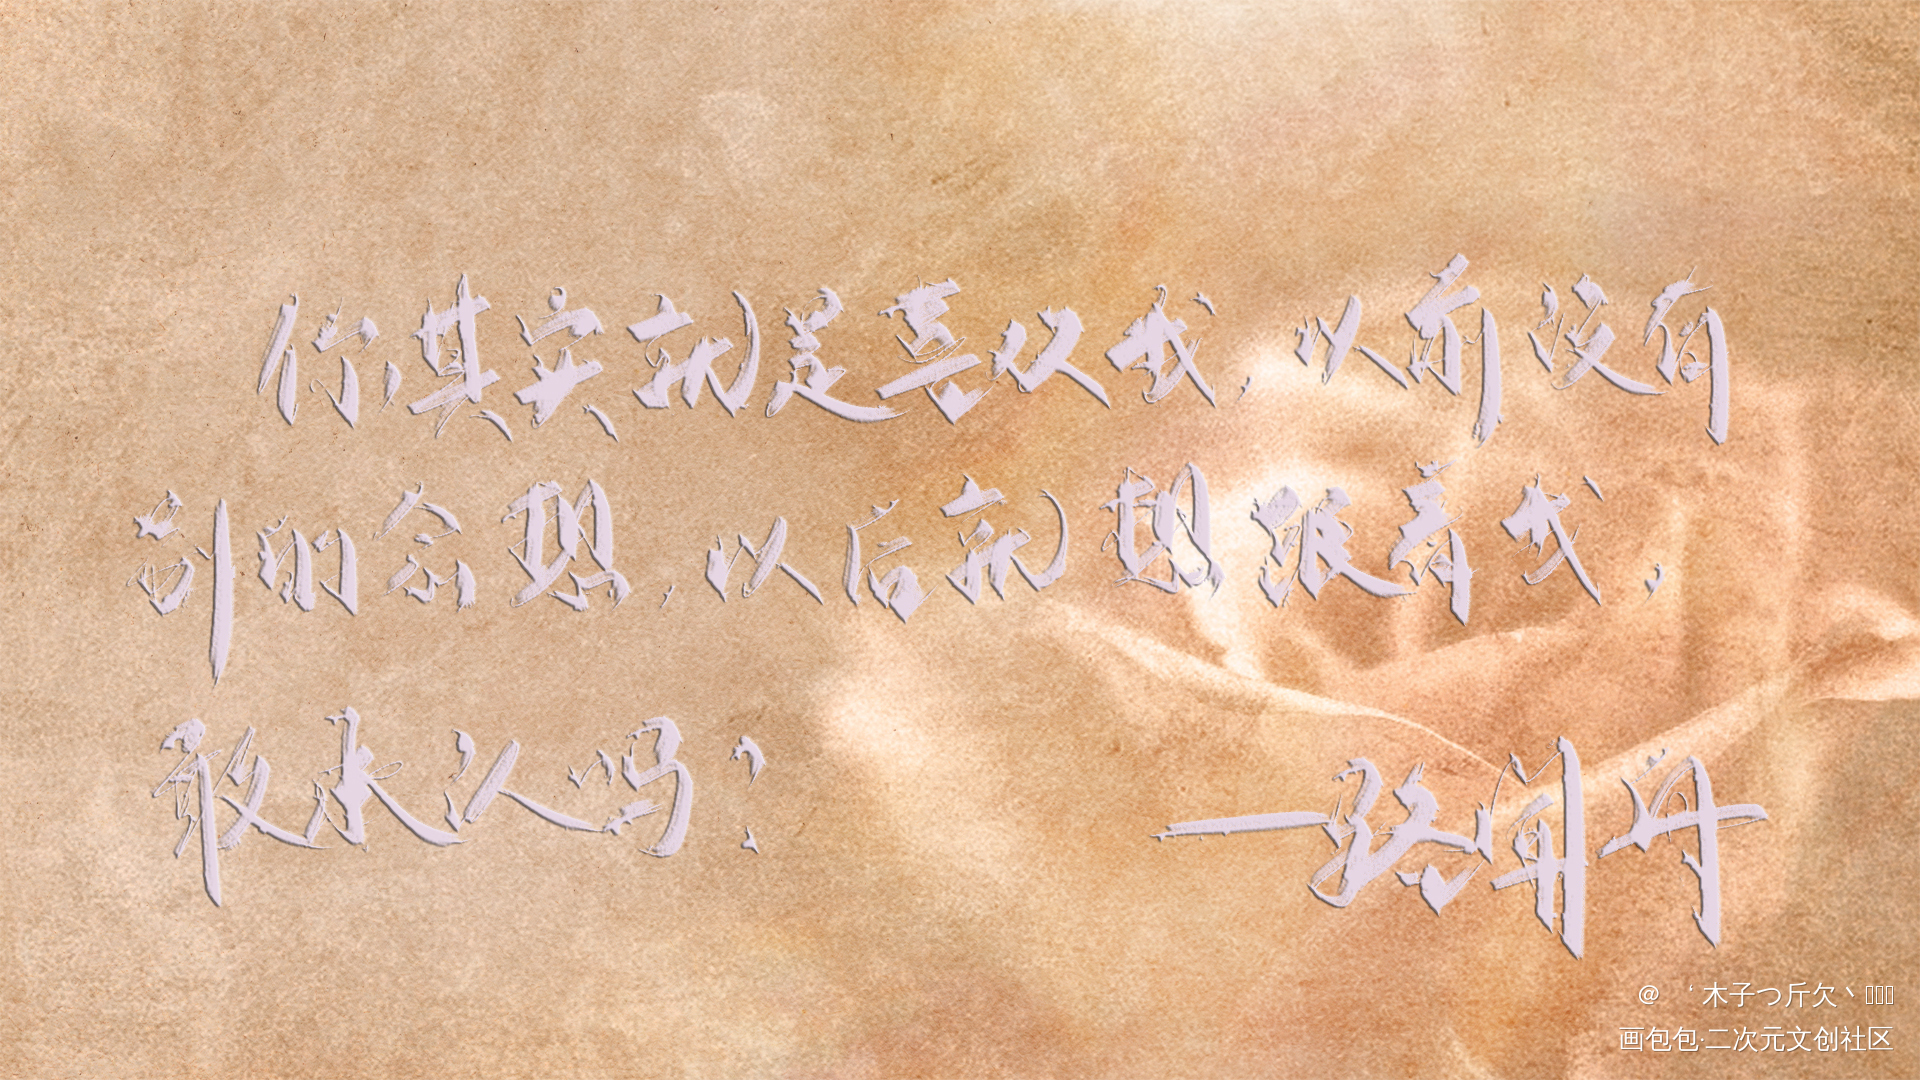 你其实就是喜欢我，以前没有
别的念想，以后就想跟着我，
敢承认吗？
—路闻舟
@ ‘ 木子つ斤欠丶
画包包·二次元文创社区